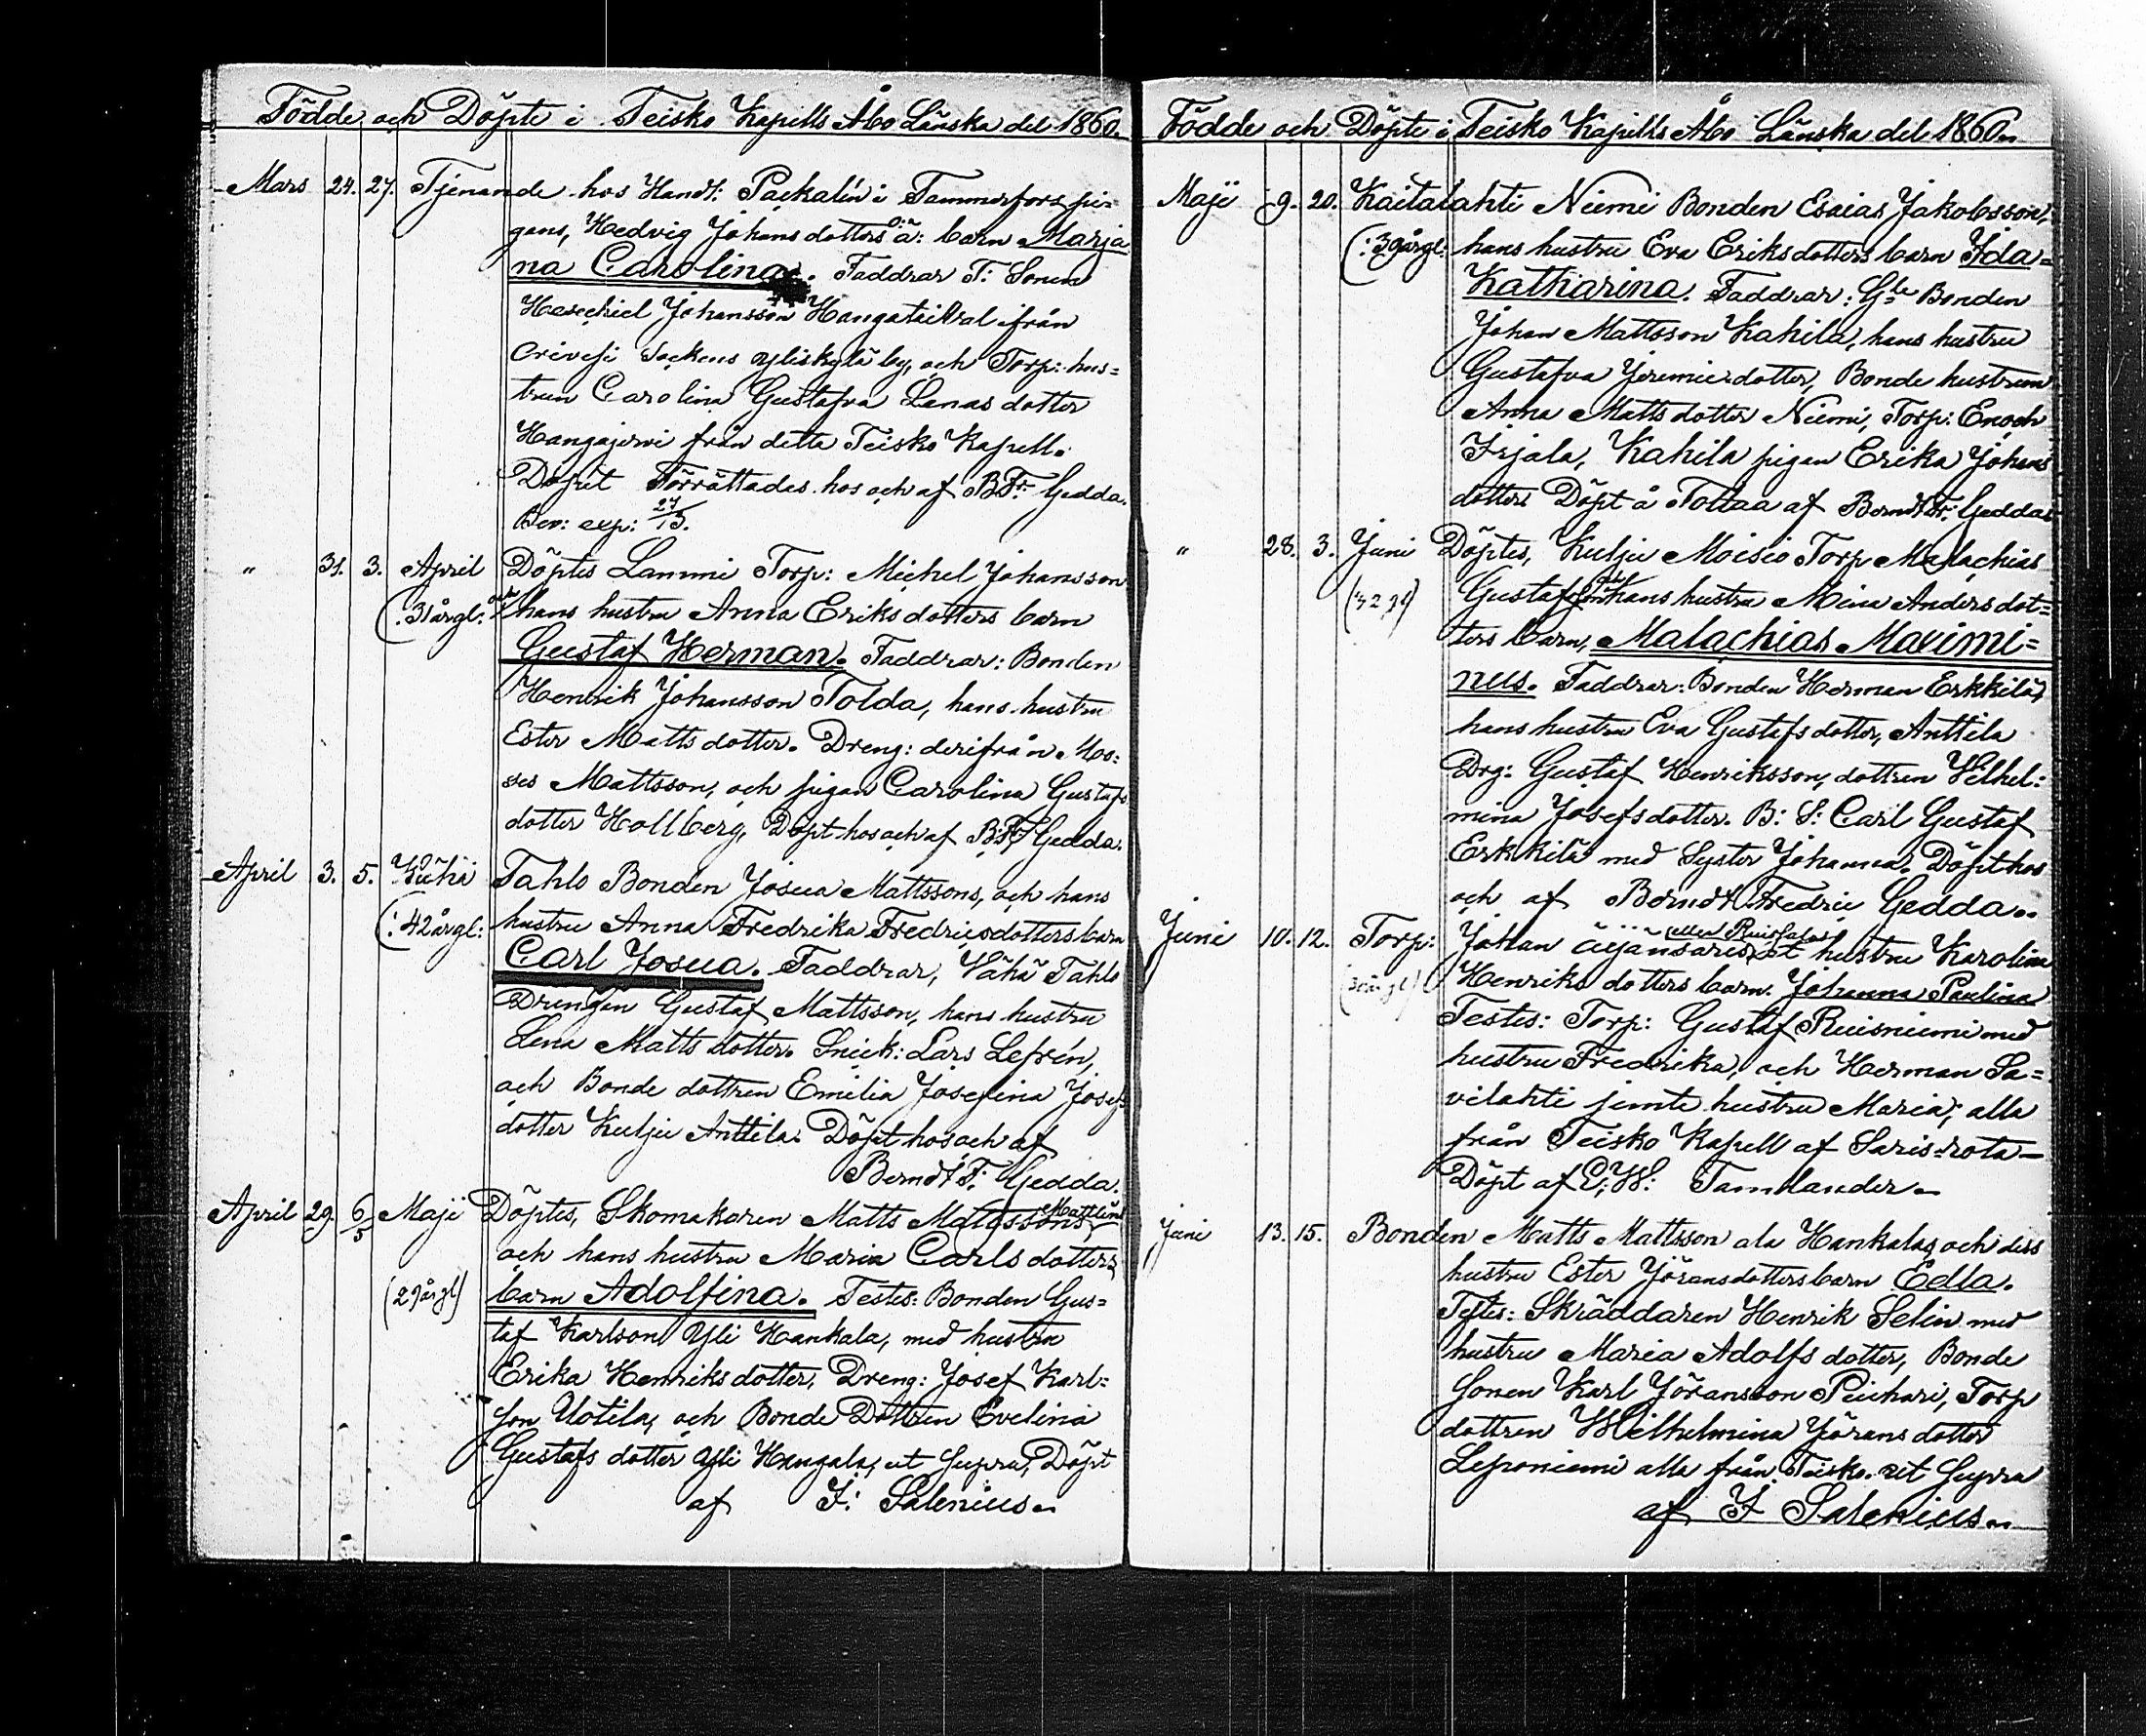 Födde och Döpte i Teisko Kapells Åbo Länska del 1860.
Mars 24. 27. Tjenande hos Handl: Packalén i Tammerfors pi-
gans, Hedvig Johansdotters o:ä: barn Marja
na Carolina. Faddrar T: Sonen
Hesechiel Johansson från
Orivesi Sockens Yliskylä by, och Torp: hus=
trun Carolina Gustafva Lenas dotter
Hangajervi från detta Teisko Kapell.
Döpit Förrättades hos och af B Fr: Gedda.
Bev: exp: 27/3.
" 31. 3. April Döptes Lammi Torp: Michel Johansson
(: 31 årgl: och hans hustru Anna Eriksdotters barn
Gustaf Herman. Faddrar: Bonden
Henrik Johansson Tolda, hans hustru
Ester Mattsdotter. Dreng: derifrån Mo=
ses Mattsson, och pigan Carolina Gustafs
dotter Hollberg, Döpt hos och af B: Fr Gedda.
April 3. 5. Tahlo Bonden Josua Mattssons, och hans
(: 42 årgl: hustru Anna Fredrika Fredricsdotters barn
Carl Josua. Faddrar, Vähä Tahlo
Drengen Gustaf Mattsson, hans hustru
Lena Matts dotter. Snick: Lars Lefrén,
och Bonde dottren Emilia Josefina Josefs
dotter Kulju Anttila. Döpt hos och af
Berndt F: Gedda.
April 29. 6/5 Maji Döptes, Skomakaren Matts Matssons
och hans hustru Maria Carls dotters
(29 årgl) barn Adolfina. Testes: Bonden Gus=
taf Karlson Yli Hankala, med hustru
Erika Henriksdotter, Dreng: Josef Karl=
son Uotila, och Bonde Dottren Evelina
Gustafs dotter Yli Hangala, ut Supra, Döpt
af J: Salenius.
Födde och Döpte i Teisko Kapells Åbo Länska del 1860.
Maji 9. 20. Kaitalahti Niemi Bonden Esaias Jakobsson,
(: 39 årgl: hans hustru Eva Eriksdotters barn Ida=
Katharina. Faddrar: Gle Bonden
Johan Mattsson Kahila, hans hustru
Gustafva Jeremiedotter, Bonde hustrun
Anna Matts dotter Niemi, Torp: Enoch
Irjala, Kahila pigan Erika Johans
dotter. Döpt å Tollaa af Berndt Fr: Gedda.
" 28. 3. Juni Döptes, Kulju Moisio Torp Malachias
(32 gl) Gustafsson och hans hustru Mina Anders dot=
ters barn, Malachias Maximi=
nus. Faddrar: Bonden Herman Erkkilä,
hans hustru Eva Gustafs dotter, Anttila
Drg: Gustaf Henriksson, dottren Vilhel:
mina Josefsdotter. B: S: Carl Gustaf
Erkkilä med Syster Johanna. Döpt hos
och af Berndt Fredric Gedda.
Juni 10. 12. Torp: Johan et hustru Karolina
Henriks dotters barn. Johanna Paulina
Testes: Torp: Gustaf Ruisniemi med
hustru Fredrika, och Herman Sa=
vilahti jemte hustru Maria; alla
från Teisko Kapell af Saris-rota
Döpt af C: W: Tamlander.
Juni 13. 15. Bonden Matts Mattsson ala Hankalas och dess
hustru Ester Jöransdotters barn Edla.
Testes: Skräddaren Henrik Selin med
hustru Maria Adolfs dotter, Bonde
Sonen Karl Jöransson Peuhari, Torp
dottren Wilhelmina Jörans dotter
Leponiemi alla från Teisko. ut Supra
af J Salenius.